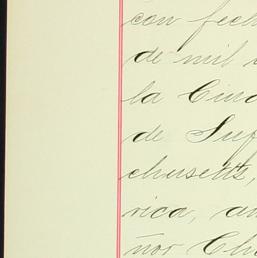 con fech
de mil
la Ciud
de Suf
chusetts,
rica, an
ñor Cha